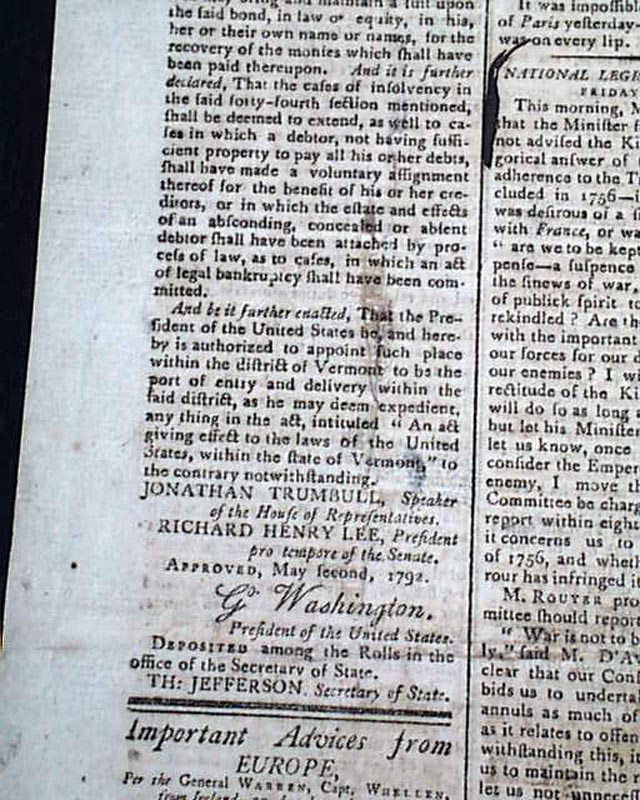 and maintain a suit upon
the ſaid bond, in law or equity, in his,
her or their own name or names, for the
recovery of the monies which ſhall have
been paid thereupon. And it is further
declared, That the caſes of inſolvency in
the ſaid forty-fourth ſection mentioned,
ſhall be deemed to extend, as well to ca-
ſes in which a debtor, not having ſuffi-
cient property to pay all his or her debts,
ſhall have made a voluntary aſſignment
thereof for the benefit of his or her cre-
ditors, or in which the eſtate and effects
of an abſconding, concealed or abſent
debtor ſhall have been attached by pro-
ceſs of law, as to caſes, in which an act
of legal bankruptcy ſhall have been com-
mitted.
And be it further enacted, That the Pre-
ſident of the United States be, and here-
by is authorized to appoint ſuch place
within the diſtrict of Vermont to be the
port of entry and delivery within the
ſaid diſtrict, as he may deem expedient,
any thing in the act, intituled " An act
giving effect to the laws of the United
States, within the ſtate of Vermont," to
the contrary notwithſtanding.
JONATHAN TRUMBULL, Speaker
of the Houſe of Repreſentatives.
RICHARD HENRY LEE, Preſident
pro tempore of the Senate.
APPROVED, May ſecond, 1792.
Go. Waſhington.
Preſident of the United States.
DEPOSITED among the Rolls in the
office of the Secretary of State.
TH: JEFFERSON, Secretary of State.
Important Advices from
EUROPE,
Per the General WARREN, Capt. WHELLEN,
from Ireland
It was impoſſibl
of Paris yeſterday
was on every lip.
NATIONAL LEG
FRIDAY
This morning, M
that the Miniſter f
not adviſed the Ki
gorical anſwer of
adherence to the T
cluded in 1756—
was deſirous of a
with France, or wa
" are we to be kept
penſe—a ſuſpence
the ſinews of war,
of publick ſpirit t
rekindled ? Are th
with the important
our forces for our
our enemies ? I wi
rectitude of the Ki
will do ſo as long
but let his Miniſter
let us know, once
conſider the Emper
enemy, I move th
Committee be charg
report within eigh
it concerns us to
of 1756, and wheth
rour has infringed it
M. ROUYER pro
mittee ſhould report
" War is not to b
ly," ſaid M. D'A
clear that our Conſ
bids us to underta
annuls as much of
as it relates to offen
withſtanding this, it
us to maintain the
let us not unneceſſ